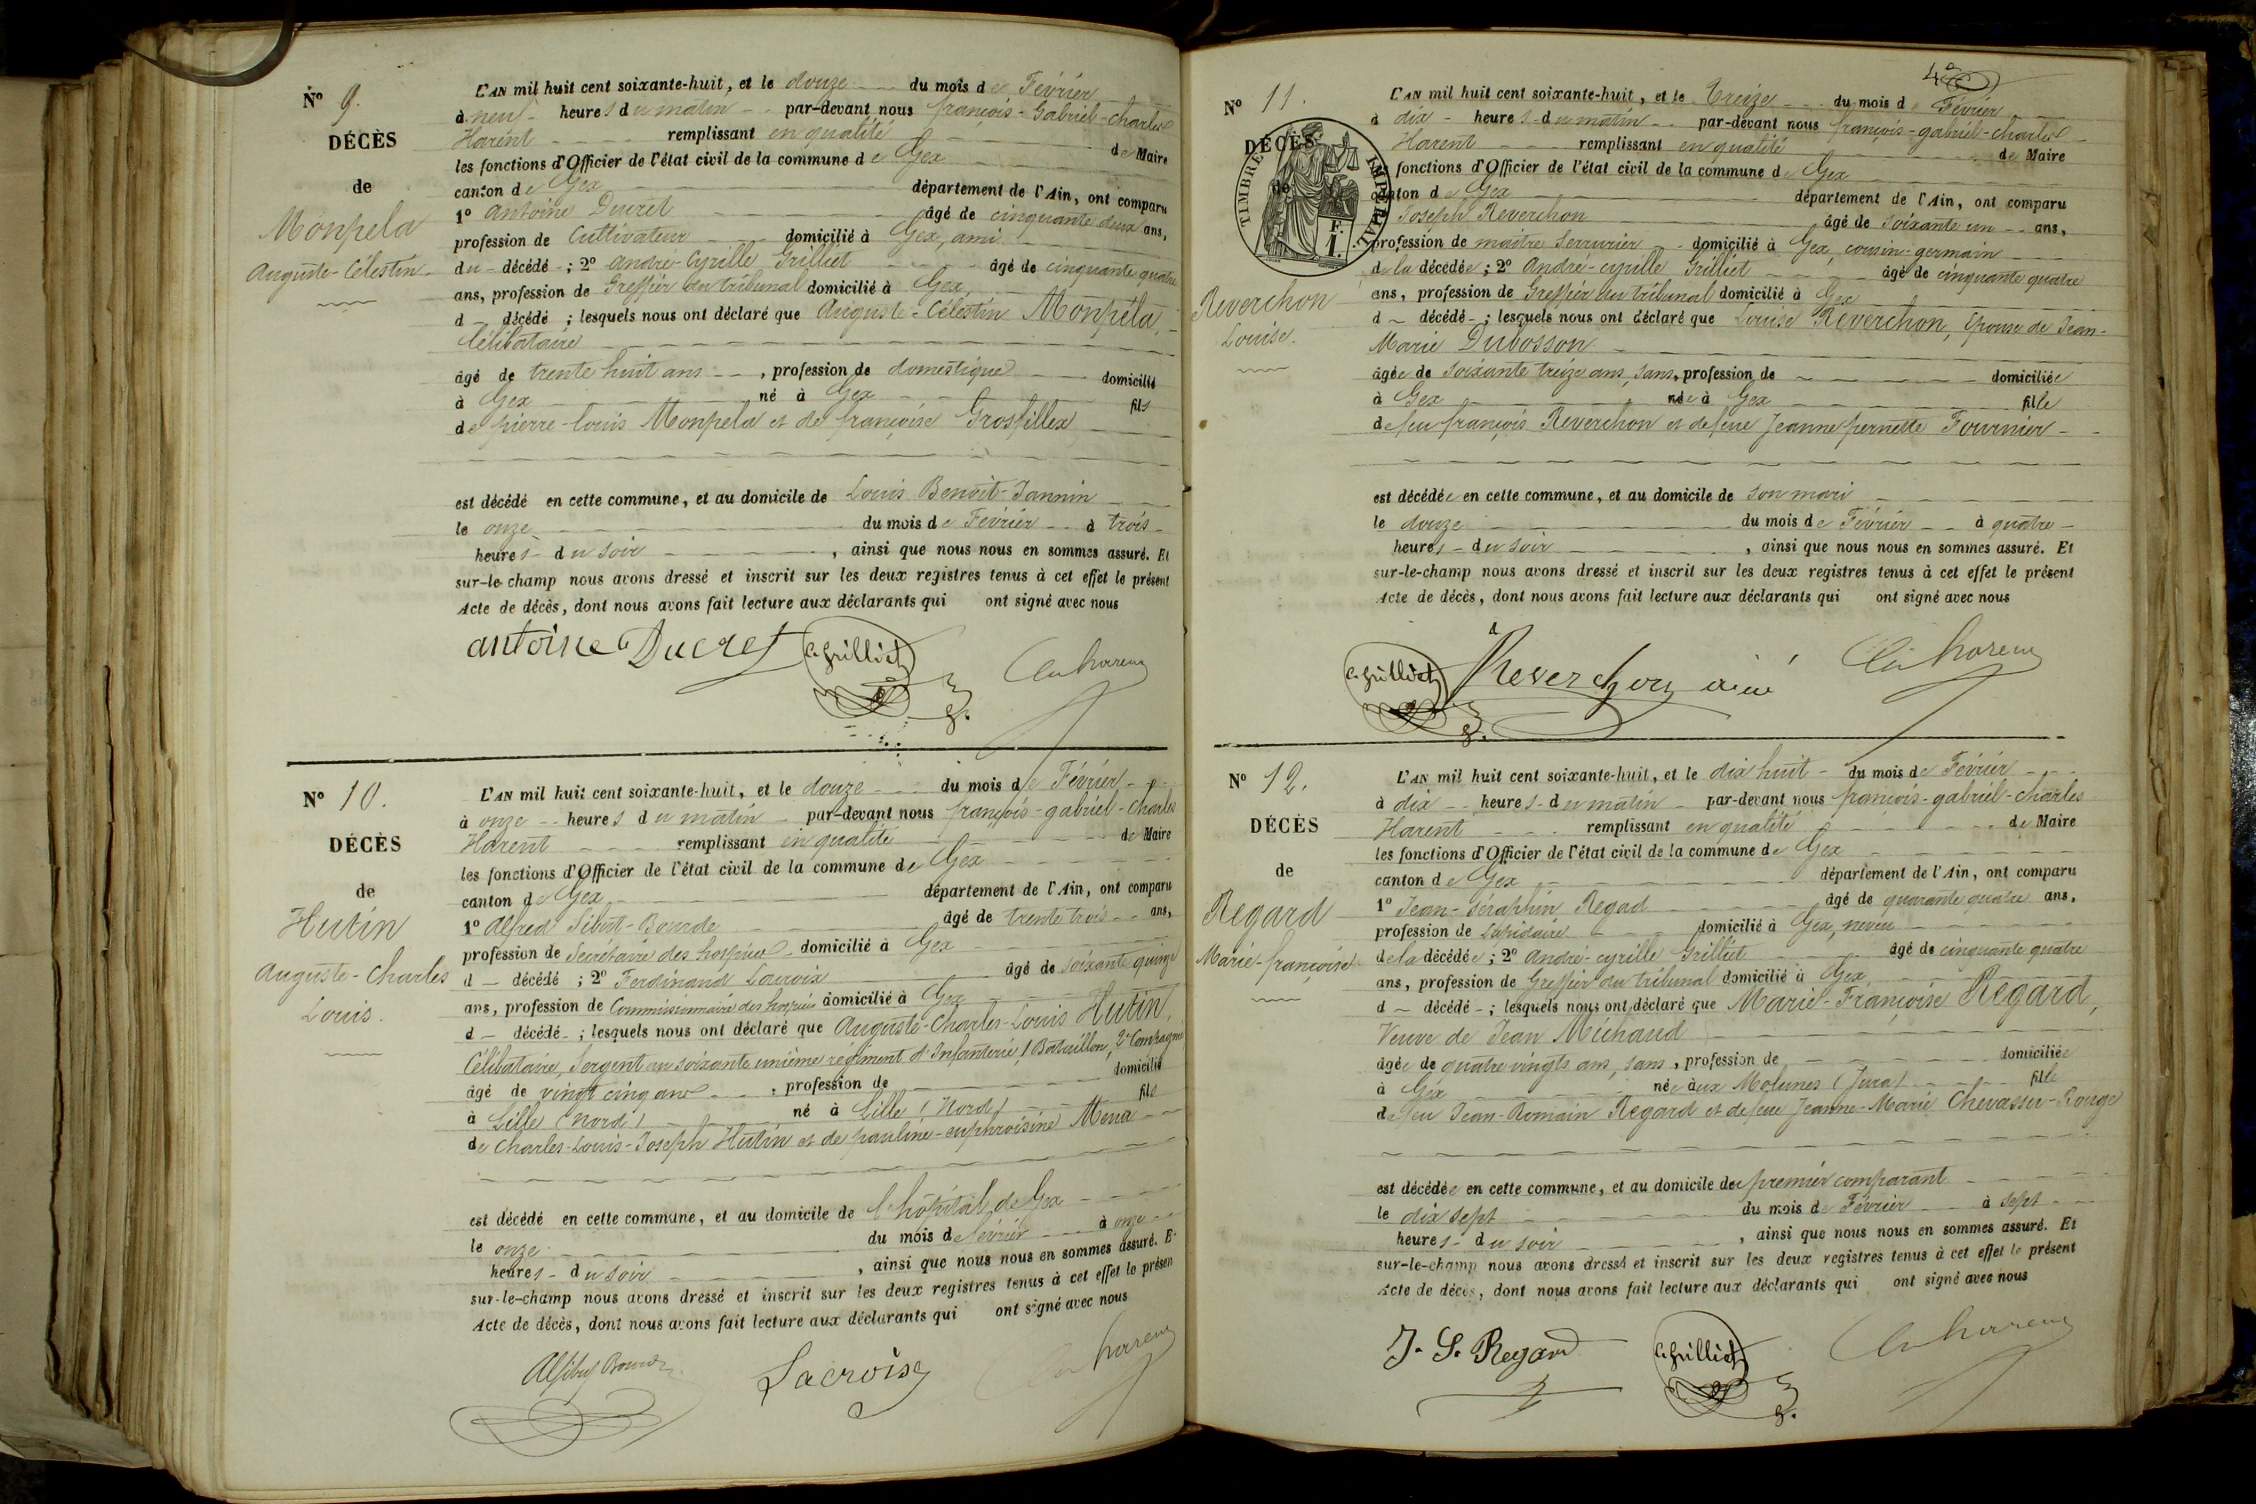 N° 9.
DÉCÈS
de
Monpela
Auguste-Célestin
L'AN mil huit cent soixante-huit, et le douze du mois de Février
à neuf heures du matin par-devant nous françois-Gabriel-Charles
Harent remplissant en qualité de Maire
les fonctions d'Officier de l'état civil de la commune de Gex
canton de Gex département de l'Ain, ont comparu
1° Antoine Ducret âgé de cinquante deux ans,
profession de Cultivateur domicilié à Gex, ami
du décédé ; 2° André-Cyrille Grilliet âgé de cinquante quatre
ans, profession de Greffier du tribunal domicilié à Gex,
d décédé ; lesquels nous ont déclaré que Auguste-Célestin Monpéla,
Célibataire
âgé de trente huit ans, profession de domestique domicilié
à Gex né à Gex fils
de pierre-louis Monpela et de françoise Grosfillex
est décédé en cette commune, et au domicile de Louis Benoit-Jannin
le onze du mois de Février à trois
heures du soir, ainsi que nous nous en sommes assuré. Et
sur-le-champ nous avons dressé et inscrit sur les deux registres tenus à cet effet le présent
Acte de décès, dont nous avons fait lecture aux déclarants qui ont signé avec nous
antoine Ducret c. grilliet
N° 10.
DÉCÈS
de
Hutin
Auguste-Charles
Louis.
L'AN mil huit cent soixante-huit, et le douze du mois de Février
à onze heures du matin par-devant nous françois-gabriel-Charles
Harent remplissant en qualité de Maire
les fonctions d'Officier de l'état civil de la commune de Gex
canton de Gex département de l'Ain, ont comparu
1° Alfred Sibut-Bourde âgé de trente trois ans,
profession de Secrétaire des hospices domicilié à Gex
d décédé ; 2° Ferdinand Lacroix âgé de soixante quinze
ans, profession de Commissionnaire des hospices domicilié à Gex
d décédé ; lesquels nous ont déclaré que Auguste-Charles-Louis Hutin,
Célibataire, Sergent au soixante unième régiment d'Infanterie, 1 Bataillon, 2e Compagnie
âgé de vingt cinq ans, profession de domicilié
à Lille (Nord) né à Lille (Nord) fils
de Charles-Louis-Joseph Hutin et de pauline-euphroisine
est décédé en cette commune, et au domicile de l'hôpital de Gex
le onze du mois de février à onze
heures du soir, ainsi que nous nous en sommes assuré. E
sur-le-champ nous avons dressé et inscrit sur les deux registres tenus à cet effet le présen
Acte de décès, dont nous avons fait lecture aux déclarants qui ont signé avec nous
Lacroix
4e
N° 11.
DÉCÈS
de
TIMBRE IMPERIAL
F.
1.
Reverchon
Louise.
L'AN mil huit cent soixante-huit, et le treize du mois de Février
à dix heures du matin par-devant nous françois-gabriel-Charles
Harent remplissant en qualité de Maire
fonctions d'Officier de l'état civil de la commune de Gex
canton de Gex département de l'Ain, ont comparu
Joseph Reverchon âgé de soixante un ans,
profession de maitre Serrurier domicilié à Gex, cousin-germain
de la décédée ; 2° André-cyrille Grilliet âgé de cinquante quatre
ans, profession de Greffier du tribunal domicilié à Gex
d décédé ; lesquels nous ont déclaré que Louise Reverchon, Epouse de Jean-
Marie Dubosson
âgée de soixante treize ans, sans, profession de domiciliée
à Gex née à Gex fille
de feu françois Reverchon et de feue Jeanne pernette Fournier
est décédée en cette commune, et au domicile de son mari
le douze du mois de Février à quatre
heures du soir, ainsi que nous nous en sommes assuré. Et
sur-le-champ nous avons dressé et inscrit sur les deux registres tenus à cet effet le présent
Acte de décès, dont nous avons fait lecture aux déclarants qui ont signé avec nous
c. grilliet Reverchon ainé
N° 12.
DÉCÈS
de
Regard
Marie-françoise
L'AN mil huit cent soixante-huit, et le dix huit du mois de Février
à dix heures du matin par-devant nous françois-gabriel-charles
Harent remplissant en qualité de Maire
les fonctions d'Officier de l'état civil de la commune de Gex
canton de Gex département de l'Ain, ont comparu
1° Jean-Séraphin Regad âgé de quarante quatre ans,
profession de Lapidaire domicilié à Gex, neveu
de la décédée ; 2° André-cyrille Grilliet âgé de cinquante quatre
ans, profession de Greffier du tribunal domicilié à Gex,
d décédé ; lesquels nous ont déclaré que Marie-Françoise Regard,
Veuve de Jean Michaud
âgée de quatre vingts ans, sans, profession de domiciliée
à Gex née aux Molunes (Jura) fille
de feu Jean-Romain Regard et de feue Jeanne-Marie Chevassu-Rouge
est décédée en cette commune, et au domicile du premier comparant
le dix sept du mois de Février à sept
heures du soir, ainsi que nous nous en sommes assuré. Et
sur-le-champ nous avons dressé et inscrit sur les deux registres tenus à cet effet le présent
Acte de décès, dont nous avons fait lecture aux déclarants qui ont signé avec nous
J. S. Regard c. grilliet